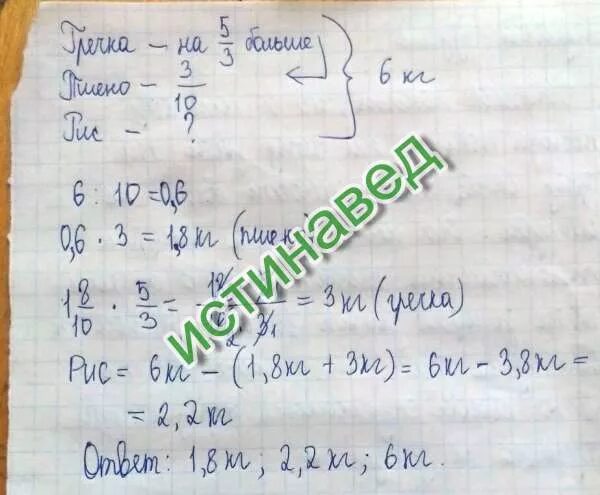 Гречка – на 5/3 больше
Пшено – 3/10
Рис – ?
6 кг
6 : 10 = 0,6
0,6 · 3 = 1,8 кг (пшен
1 8/10 · 5/3 = = 3 кг (гречка)
Рис = 6 кг – (1,8 кг + 3 кг) = 6 кг – 3,8 кг =
= 2,2 кг
Ответ: 1,8 кг; 2,2 кг; 6 кг.
истинавед